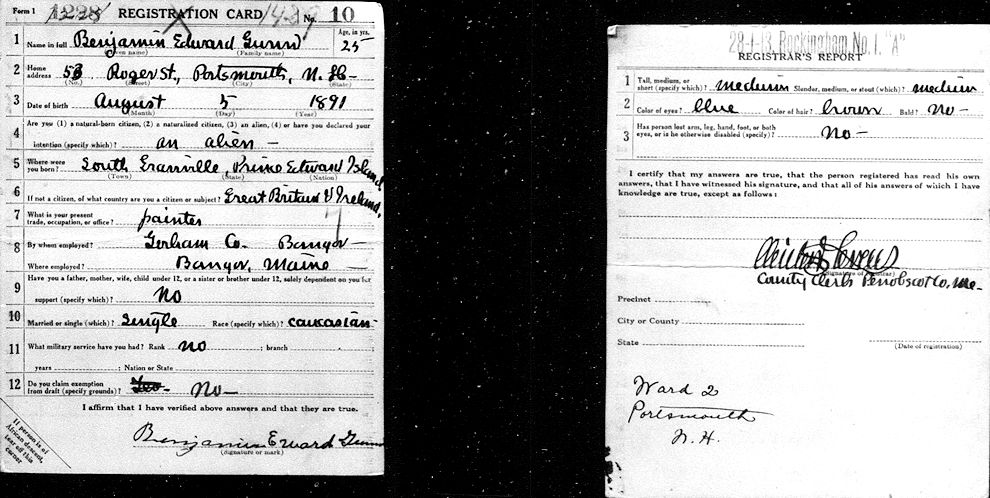 Form 1 1228 REGISTRATION CARD 142 No. 10
1 Name in full Benjamin Edward Gunn Age, in yrs. 25
(Given name) (Family name)
2 Home address 53 Roger St., Portsmouth, N. H-
(No.) (Street) (City) (State)
3 Date of birth August 5 1891
(Month) (Day) (Year)
4 Are you (1) a natural-born citizen, (2) a naturalized citizen, (3) an alien, (4) or have you declared your
intention (specify which)? an alien -
5 Where were you born? South Granville, Prince Edward Island
(Town) (State) (Nation)
6 If not a citizen, of what country are you a citizen or subject? Great Britain & Ireland,
7 What is your present trade, occupation, or office? painter
8 By whom employed? Gorham Co. Bangor -
Where employed? Bangor, Maine -
9 Have you a father, mother, wife, child under 12, or a sister or brother under 12, solely dependent on you for
support (specify which)? No
10 Married or single (which)? Single Race (specify which)? Caucasian-
11 What military service have you had? Rank no ; branch
years ; Nation or State
12 Do you claim exemption from draft (specify grounds)? No-
I affirm that I have verified above answers and that they are true.
Benjamin Edward Gunn
(Signature or mark)
If person is of
African descent,
tear off this
corner
28-1-13. Rockingham, No. 1. "A"
REGISTRAR'S REPORT
1 Tall, medium, or short (specify which)? medium Slender, medium, or stout (which)? medium
2 Color of eyes? blue Color of hair? brown Bald? No-
3 Has person lost arm, leg, hand, foot, or both
eyes, or is he otherwise disabled (specify)? No-
I certify that my answers are true, that the person registered has read his own
answers, that I have witnessed his signature, and that all of his answers of which I have
knowledge are true, except as follows:
(Signature of registrar)
County Clerk Penobscot Co, Me-
Precinct
City or County
State
(Date of registration)
Ward 2
Portsmouth
N. H.